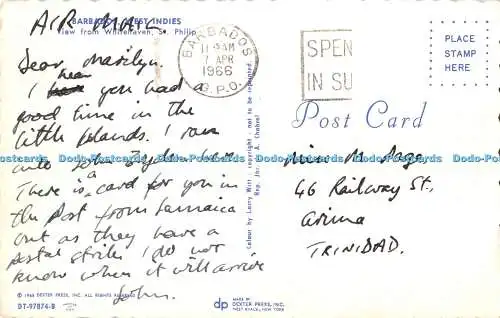 AIR MAIL
BARBADOS, WEST INDIES
View from Whitehaven, St. Philip
Dear Marilyn.
I hear you had a
good time in the
little Islands. I ran
into John here.
There is a card for you in
the Post from Jamaica
but as they have a
postal strike I do not
know when it will arrive
John.
© 1965 DEXTER PRESS, INC. ALL RIGHTS RESERVED
DT-97874-B
BARBADOS
11 AM
7 APR
1966
G.P.O.
SPEN
IN SU
PLACE
STAMP
HERE
Post Card
Colour by Larry Witt : copyright - not to be reprinted
Miss M. Sage
46 Railway St.,
Arima
TRINIDAD.
dp
MADE BY
DEXTER PRESS, INC.
WEST NYACK, NEW YORK
Dodo-Postcards Dodo-Postcards Dodo-Postcards Dodo-Postcards Dodo-Postcards